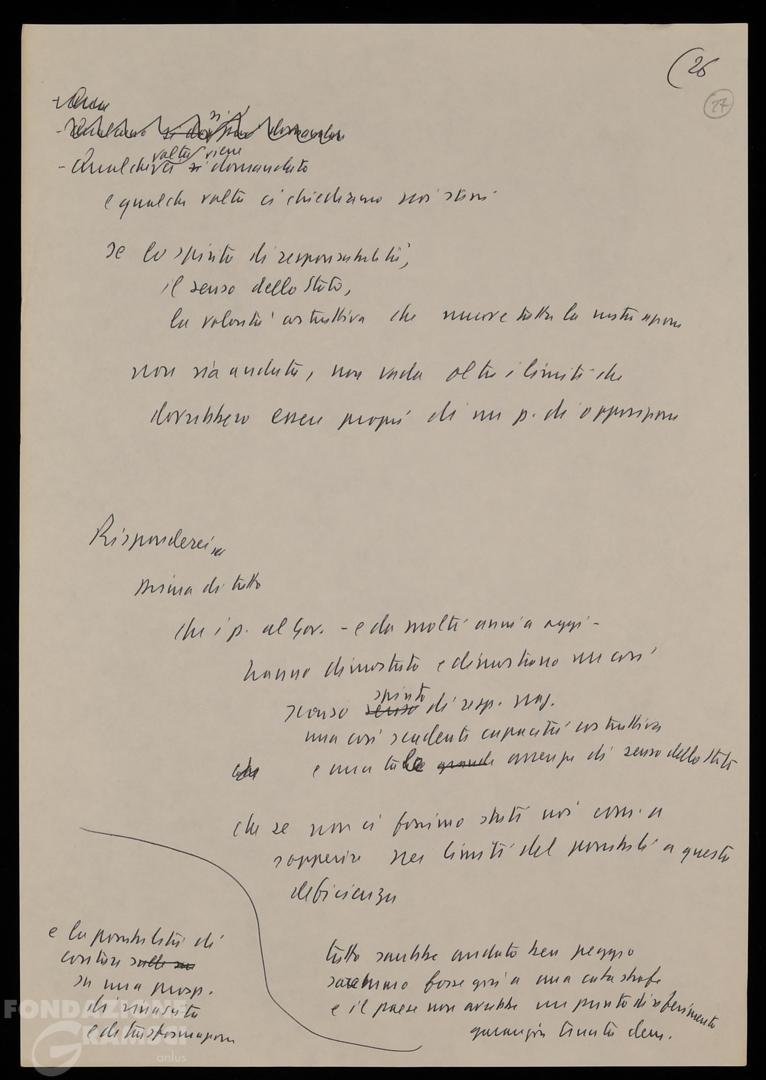 (26
27
- Qualche volta viene si domandato
e qualche volta ci chiediamo noi stessi
se lo spirito di responsabilità,
il senso dello Stato,
la volontà costruttiva che muove tutta la nostra azione
non sia andata, non vada oltre i limiti che
dovrebbero essere propri di un p. di opposizione
Risponderei
prima di tutto
che i p. al Gov. - e da molti anni a oggi -
hanno dimostrato e dimostrano un così
scarso senso spirito di resp. naz.
una così scadente capacità costruttiva
e una tale grande assenza di senso dello Stato
che se non ci fossimo stati noi com. a
sopperire nei limiti del possibile a queste
deficienze
tutto sarebbe andato ben peggio
saremmo forse già a una catastrofe
e il paese non avrebbe un punto di riferimento
garanzia tenuta dem.
e la possibilità di
contare
su una prosp.
di rinascita
e di trasformazione
FONDAZIONE
GRAMSCI
onlus